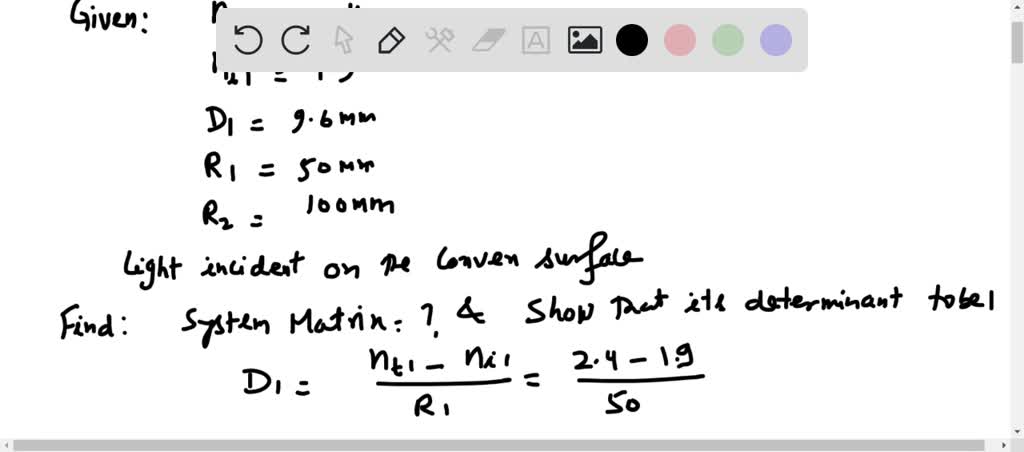 Given:
D₁ = 9.6mm
R₁ = 50mm
R₂ = 100mm
Light incident on the Conven surface
Find: System Matrix = ? & Show that its determinant tobe 1
D₁ = (n_t1 − n_i1) / R₁ = (2.4 − 1.9) / 50